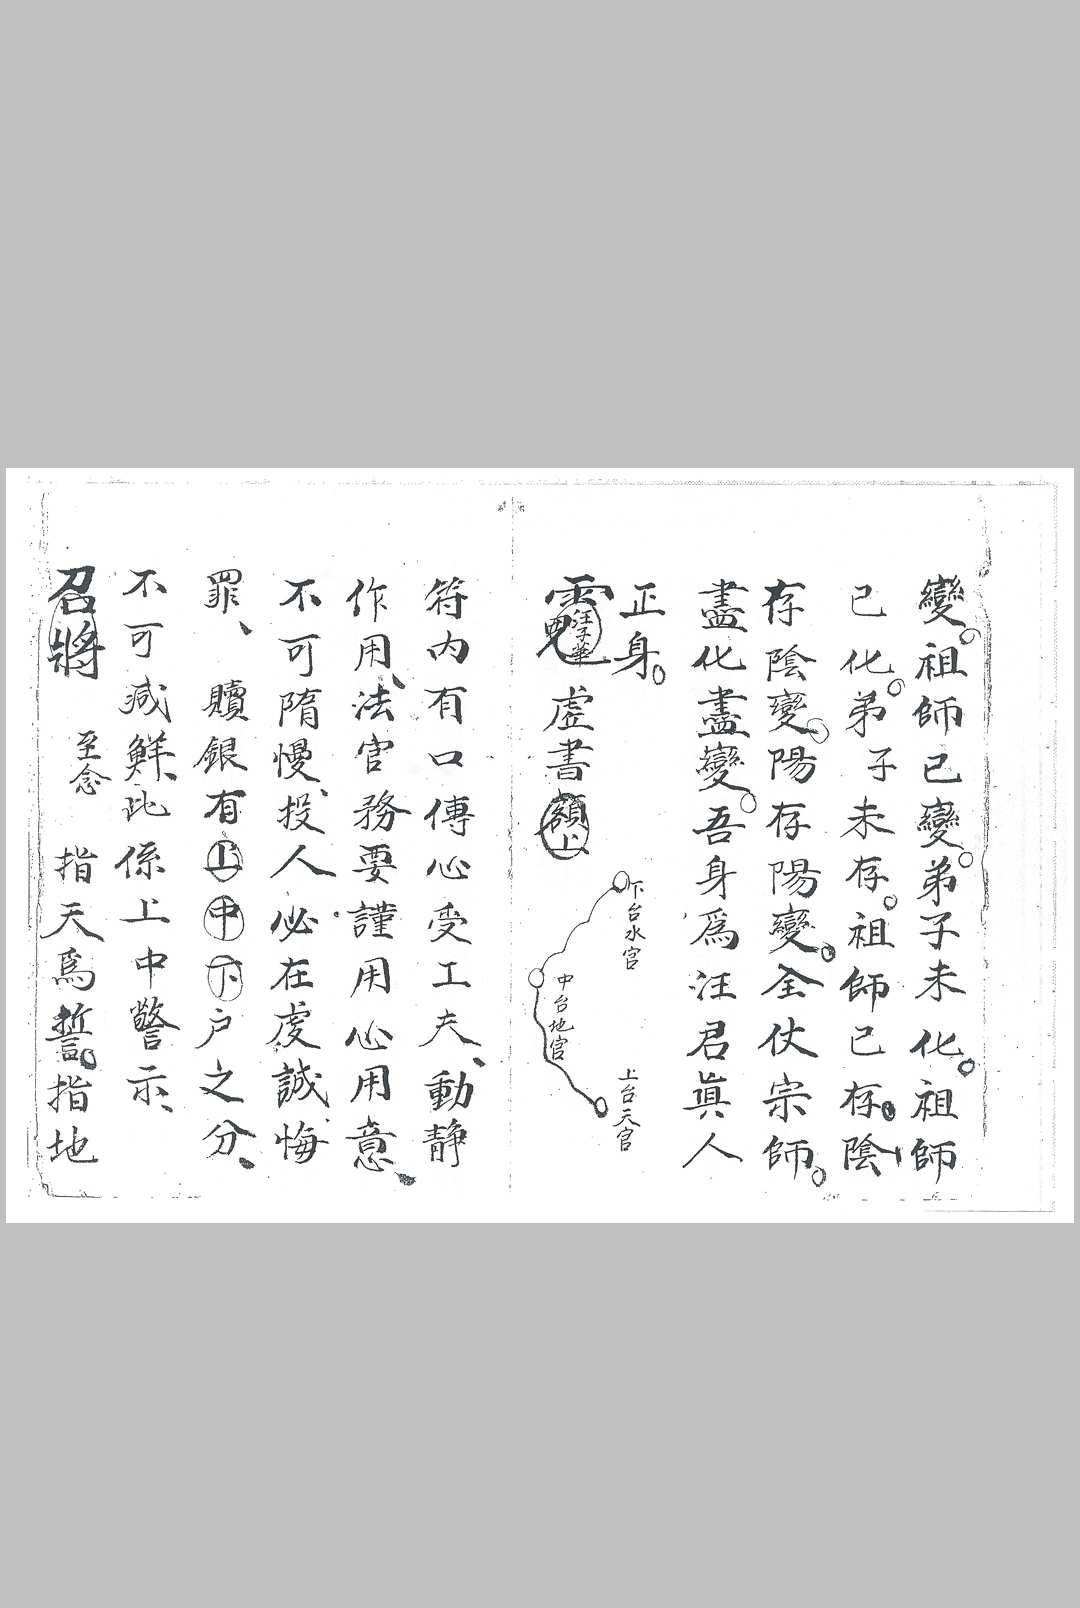 變。祖師已變。弟子未化。祖師
已化。弟子未存。祖師已存。陰
存陰變。陽存陽變。全仗宗師。
盡化盡變。吾身為汪君真人
正身。
汪子華
虛書額上
下台水官
中台地官
上台天官
符內有口傳心受工夫、動靜
作用、法官務要謹用心用意、
不可隋慢、投人必在虔誠悔
罪、贖銀有上中下户之分、
不可減鮮、此係上中警示、
召將 至念 指天為誓。指地